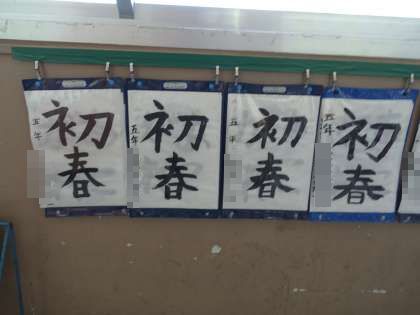 初春
五年
初春
五年
初春
五年
初春
五年